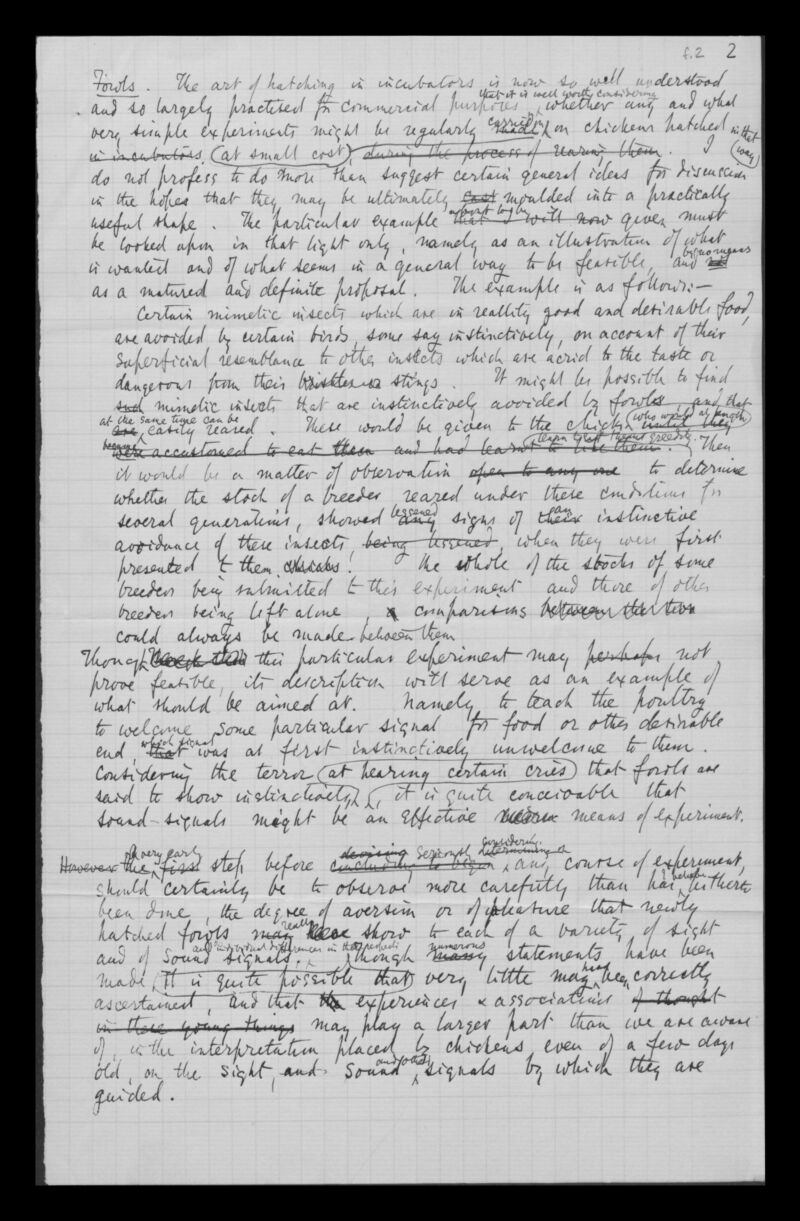 f.2 2
Fowls. The art of hatching in incubators is now so well understood
that it is well worth considering
and so largely practised for commercial purposes, whether any and what
carried on
very simple experiments might be regularly made on chickens hatched in that
in incubators, (at small cost), during the process of rearing them. I way
do not profess to do more than suggest certain general ideas for discussion
in the hopes that they may be ultimately cast moulded into a practically
about to be
useful shape. The particular example that I will now given must
be looked upon in that light only, namely as an illustration of what
by no means
is wanted and of what seems in a general way to be feasible, and not
as a matured and definite proposal. The example is as follows:—
Certain mimetic insects which are in reallity good and desirable food,
are avoided by certain birds, some say instinctively, on account of their
superficial resemblance to other insects which are acrid to the taste or
dangerous from their stings. It might be possible to find
such mimetic insects that are instinctively avoided by fowls, and that
at the same time can be
are easily reared. These would be given to the chicks (who would at length) until they
became learn to eat them greedily.
were accustomed to eat them and had learnt to like them. Then
it would be a matter of observation open to any one to determine
whether the stock of a breeder reared under these conditions for
lessened an
several generations, showed any signs of their instinctive
avoidance of these insects, being lessened, when they were first
presented to them. The whole of the stocks of some
breeders being submitted to this experiment and those of other
breeders being left alone, a comparisons between the two
could always be made between them
Though this particular experiment may perhaps not
prove feasible, its description will serve as an example of
what should be aimed at. Namely to teach the poultry
to welcome some particular signal for food or other desirable
which signal
end, that was at first instinctively unwelcome to them.
Considering the terror (at hearing certain cries) that fowls are
said to show instinctively, it is quite conceivable that
sound-signals might be an effective means of experiment.
A very early devising seriously considering
However the first step before concluding to begin determining any course of experiment,
should certainly be to observe more carefully than has hitherto
been done, the degree of aversion or of pleasure that newly
really
hatched fowls may have show to each of a variety of sight
and individual differences in these respects numerous
and of sound signals. Though many statements have been
have
made, it is quite possible that very little may been correctly
ascertained, and that the experiences & associations of thought
in these young things may play a larger part than we are aware
of, in the interpretation placed by chickens even of a few days
old, on the sight, and sound signals by which they are
guided.